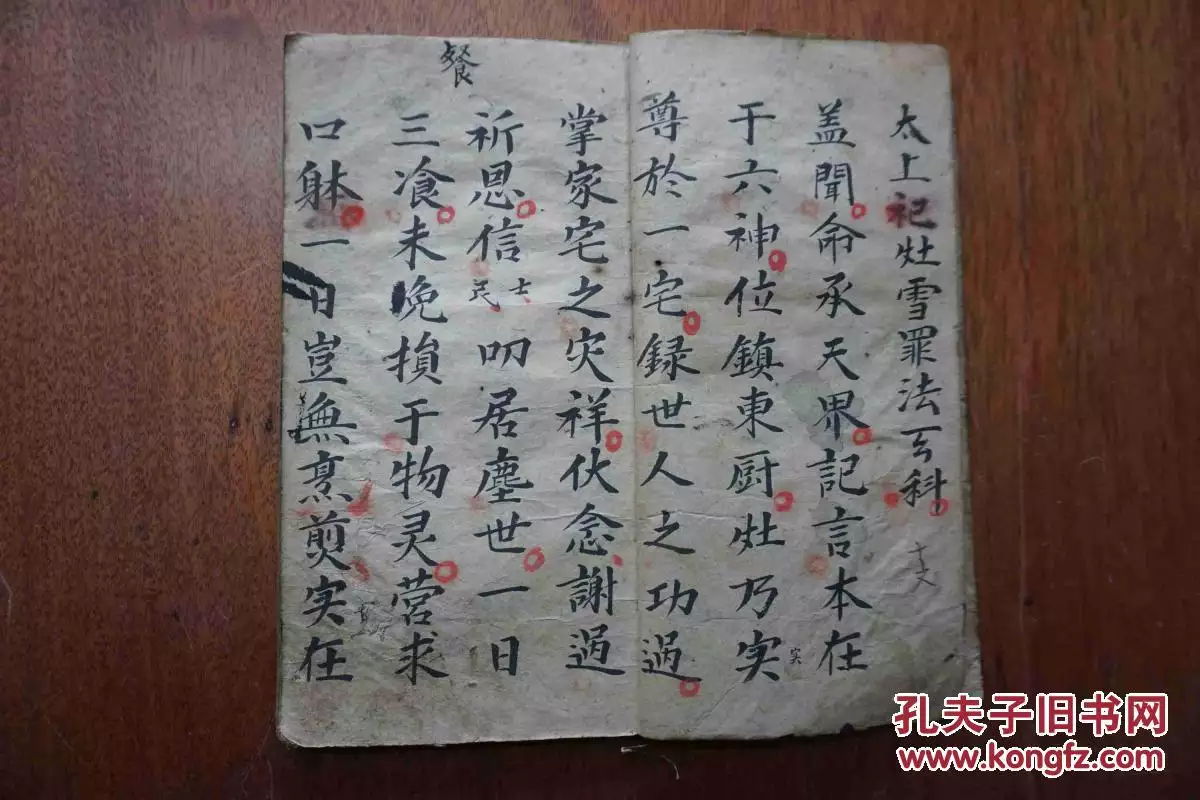 太上祀灶雪罪法亝科
盖聞命承天界記言本在
于六神位鎮東厨灶乃实
实
尊於一宅録世人之功過
掌家宅之灾祥伏念謝過
祈恩信士民叩居塵世一日
餐
三飡未晚損于物灵营求
口躰一日豈無烹煎实在
孔夫子旧书网
www.kongfz.com